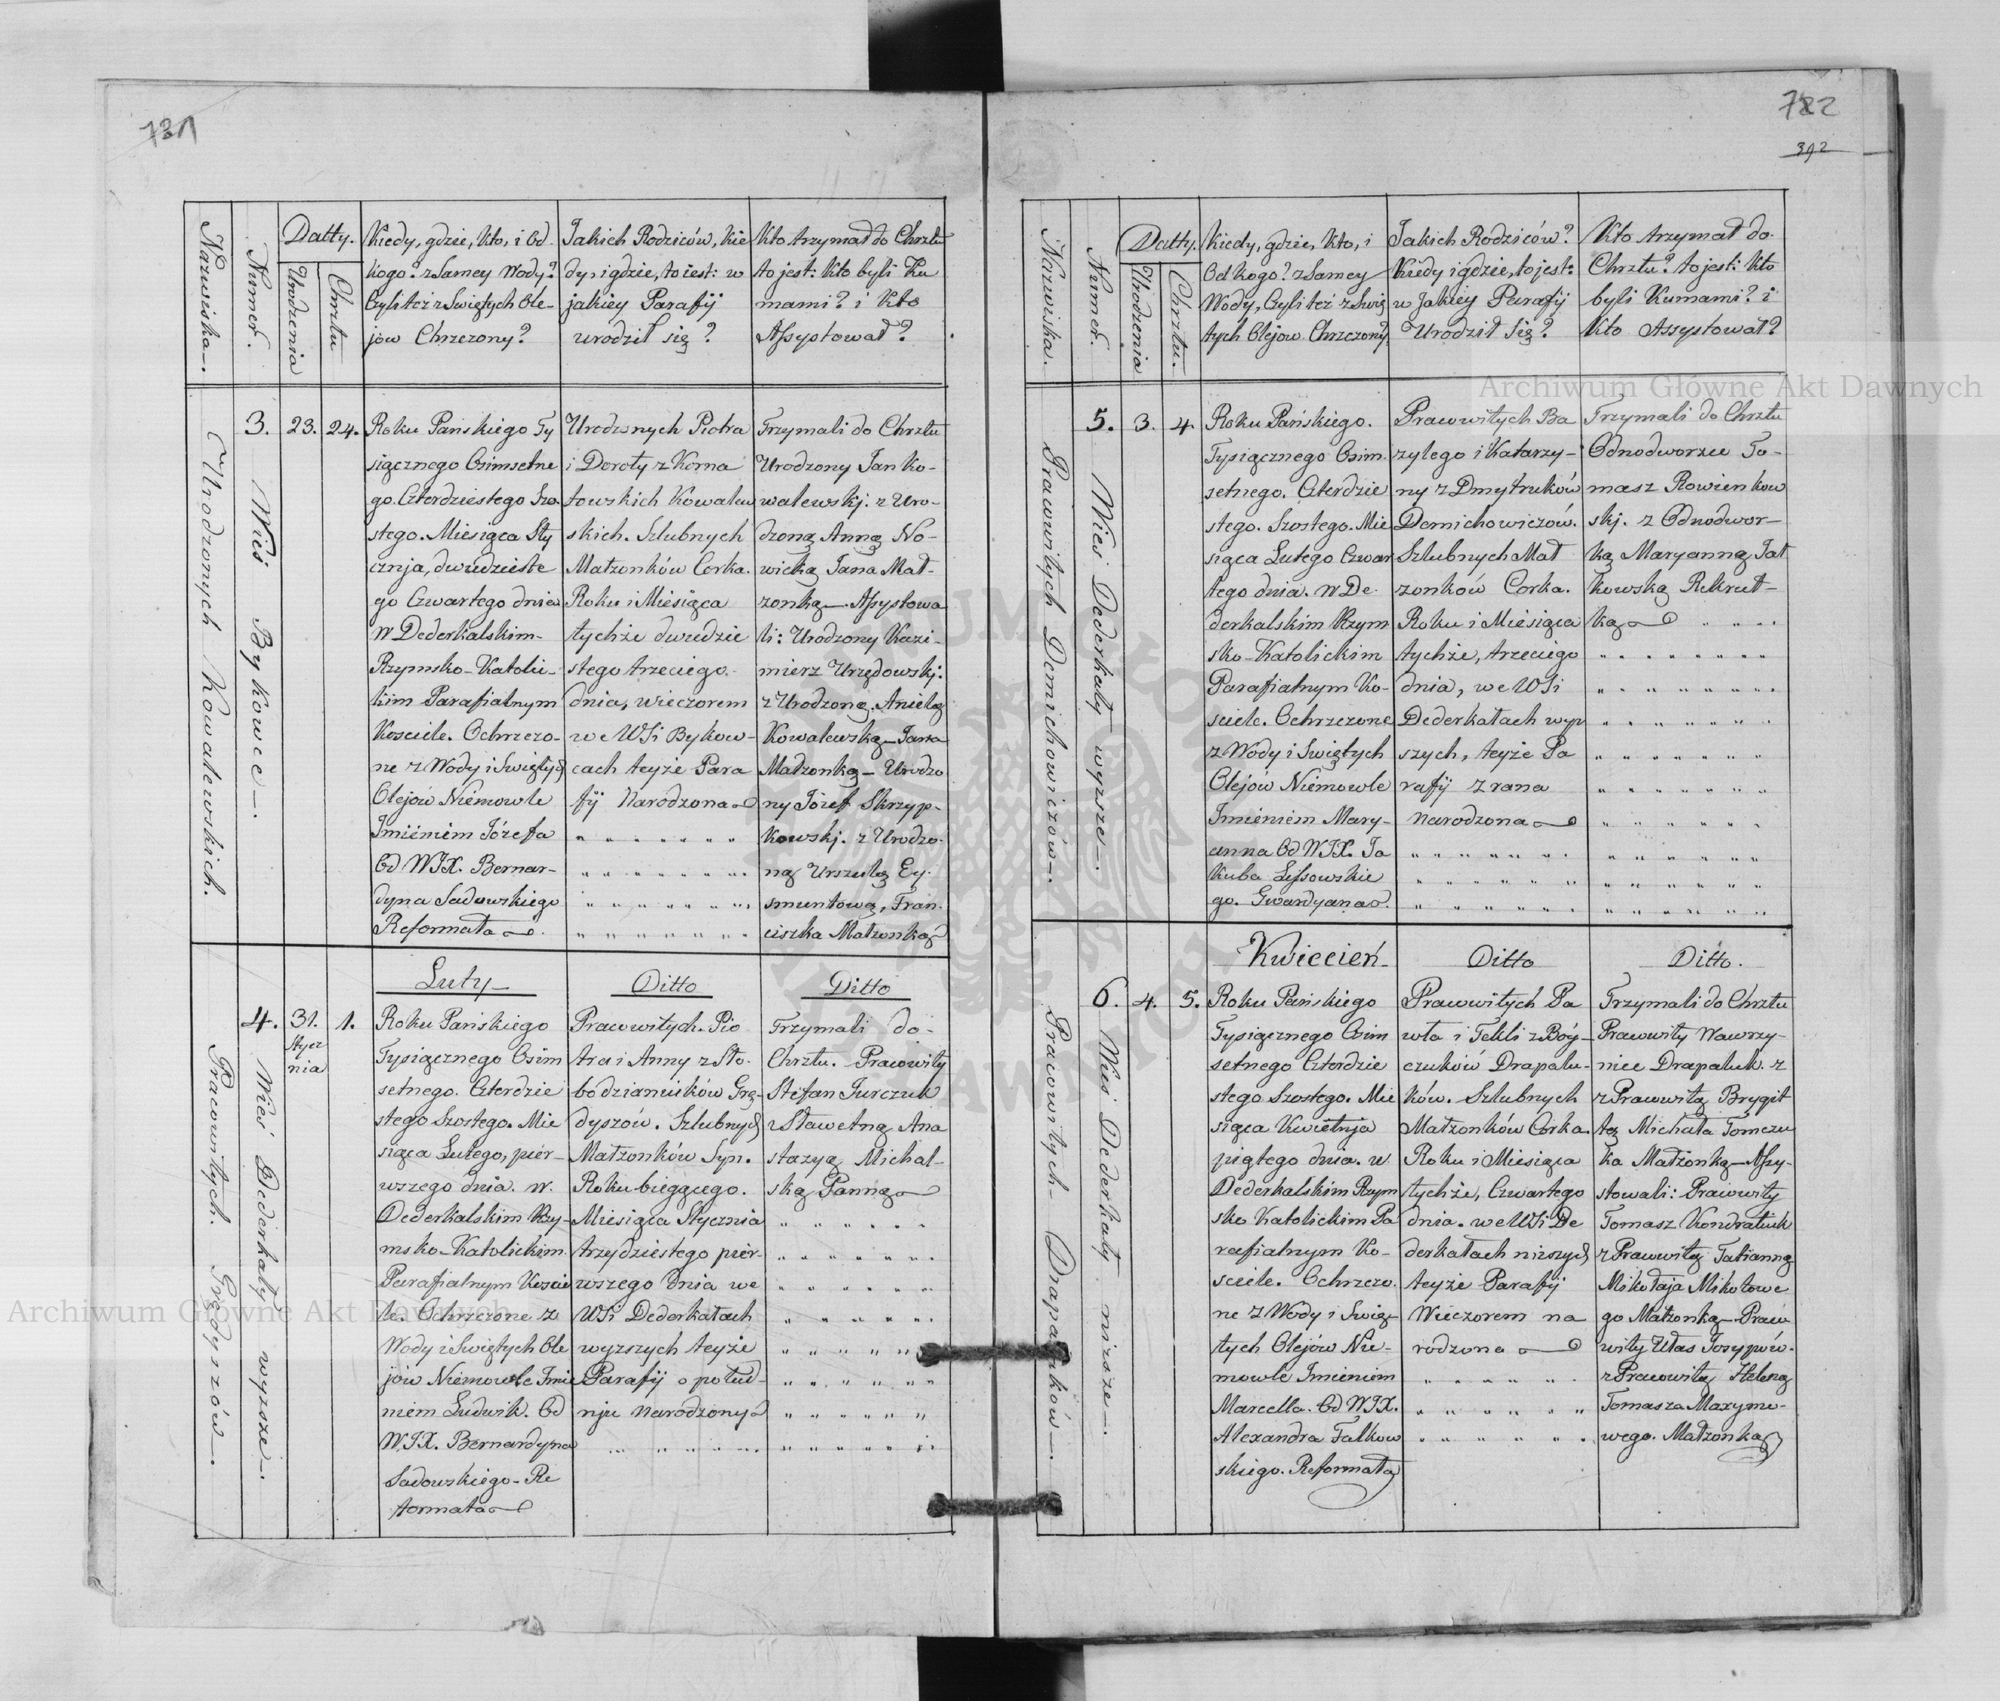 731
Nazwiska
Numer.
Datty.
Urodzenia
Chrztu
Kiedy, gdzie, kto, i Od
kogo? z Samey Wody?
Czyli też z Swiętych Ole-
jów Chrzczony?
Jakich Rodziców, kie
dy, i gdzie, to iest: w
jakiey Parafij
urodził się?
Kto trzymał do Chrztu
to jest: Kto byli Ku
mami? i Kto
Assystował?
Urodzonych Kowalewskich.
3.
Wieś Bykowce.
23.
24.
Roku Pańskiego Ty
siącznego Osimsetne
go. Czterdziestego Szo-
stego. Miesiąca Sty
cznja, dwudzieste
go Czwartego dnia
w Dederkalskim-
Rzymsko-Katolic-
kim Parafialnym
Kosciele. Ochrzczo-
ne z Wody i Swiętych
Olejów Niemowle
Jmieniem Józefa
Od WJX. Bernar-
dyna Sadowskiego
Reformata
Urodzonych Piotra
i Doroty z Korna
towskich Kowalew
skich. Szlubnych
Małzonków Corka.
Roku i Miesiąca
tychże dwudzie
stego trzeciego.
dnia, wieczorem
we WSi Bykow-
cach teyże Para
fij Narodzona
Trzymali do Chrztu
Urodzony Jan Ko-
walewskj. z Uro-
dzoną Anną No-
wicką Jana Mał-
zonką — Assystowa
li: Urodzony Kazi-
mierz Urzędowskj.
z Urodzoną. Anielą
Kowalewską — Jana
Małzonką — Urodzo
ny Józef Skrzyp-
kowskj. z Urodzo-
ną Urszulą Ey-
smuntową, Fran-
ciszka Małzonką
Luty
Ditto
Ditto
Prawowitych. Grędyszów
4.
Wieś Dederkały wyzsze
31.
Stycz
nia
1.
Roku Pańskiego
Tysiącznego Osim
setnego. Czterdzie
stego Szostego. Mie
siąca Lutego, pier-
wszego dnia. w.
Dederkalskim Rzy-
msko-Katolickim
Parafialnym Koscie
le. Ochrzczone z
Wody i Swiętych Ole
jów Niemowle Jmie
niem Ludwik. Od
WJX. Bernardyna
Sadowskiego-Re
formata
Prawowitych. Pio
tra i Anny z Sło-
bodzianiuków Grę-
dyszów. Szlubnych
Małzonków Syn.
Roku bieggcego.
Miesiąca Stycznia
trzydziestego pier-
wszego dnia we
WSi Dederkałach
wyzszych teyże
Parafij o połud-
nju narodzony
Trzymali do-
Chrztu. Prawowity
Stefan Jurczuk
z Sławetną Ana
stazyą Michal-
ską Panną
782
392
Nazwiska.
Numer.
Datty.
Urodzenia
Chrztu.
Kiedy, gdzie, Kto, i
Od kogo? z Samey
Wody, Czyli też z Swię
tych Olejów Chrzczony?
Jakich Rodziców?
Kiedy i gdzie, to jest:
w Jakiey Parafij
Urodził Się?
Kto trzymał do-
Chrztu? to jest: Kto
byli Kumami? i
Kto Assystował?
Prawowitych Demichowiczów
5.
Wieś Dederkały wyzsze
3.
4
Roku Pańskiego.
Tysiącznego Osim-
setnego. Czterdzie
stego. Szostego. Mie
siąca Lutego Czwar
tego dnia. w De-
derkalskim Rzym
sko-Katolickim
Parafialnym Ko-
sciele. Ochrzczone
z Wody i Swiętych
Olejów Niemowle
Jmieniem Mary-
anna Od WJX. Ja
kuba Lissowskie
go. Gwardyana.
Prawowitych Ba
zylego i Katarzy-
ny z Dmytruków
Demichowiczów.
Szlubnych Mał
zonków Corka.
Roku i Miesiąca
tychże, trzeciego
dnia, we WSi
Dederkałach wyz
szych, teyże Pa
rafij z rana
Narodzona
Trzymali do Chrztu
Odnodworzec To-
masz Rowienkow
skj. z Odnodwor-
ką Maryanną Jat
kowską Rekrut-
ką
Kwiecień
Ditto
Ditto.
Prawowitych- Drapaluków
6.
Wieś Dederkały nizsze
4.
5.
Roku Pańskiego
Tysiącznego Osim
setnego Czterdzie
stego Szostego. Mie
siąca Kwietnja
piątego dnia. w
Dederkalskim Rzym
sko Katolickim Pa
rafialnym Ko-
sciele. Ochrzczo-
ne z Wody i Swię-
tych Olejów Nie-
mowle Jmieniem
Marcella. Od WJX.
Alexandra Falkow
skiego. Reformata
Prawowitych Pa
wła i Tekli z Bóy-
czuków Drapalu-
ków. Szlubnych
Małzonków Corka.
Roku i Miesiąca
tychże, Czwartego
dnia. we WSi De
derkałach nizszych
teyże Parafij
Wieczorem na
rodzona
Trzymali do Chrztu
Prawowity Wawrzy-
niec Drapaluk. z
z Prawowitą Brygit
tą Michała Tomczu
ka Małzonką — Assy-
stowali: Prawowity
Tomasz Kondratiuk
z Prawowitą Tatianną
Mikołaja Mikołowe
go Małzonką — Prawo
wity Ułas Josypów.
z Prawowitą Heleną
Tomasza Maxymo-
wego. Małzonką
Archiwum Główne Akt Dawnych
Archiwum Główne Akt Dawnych